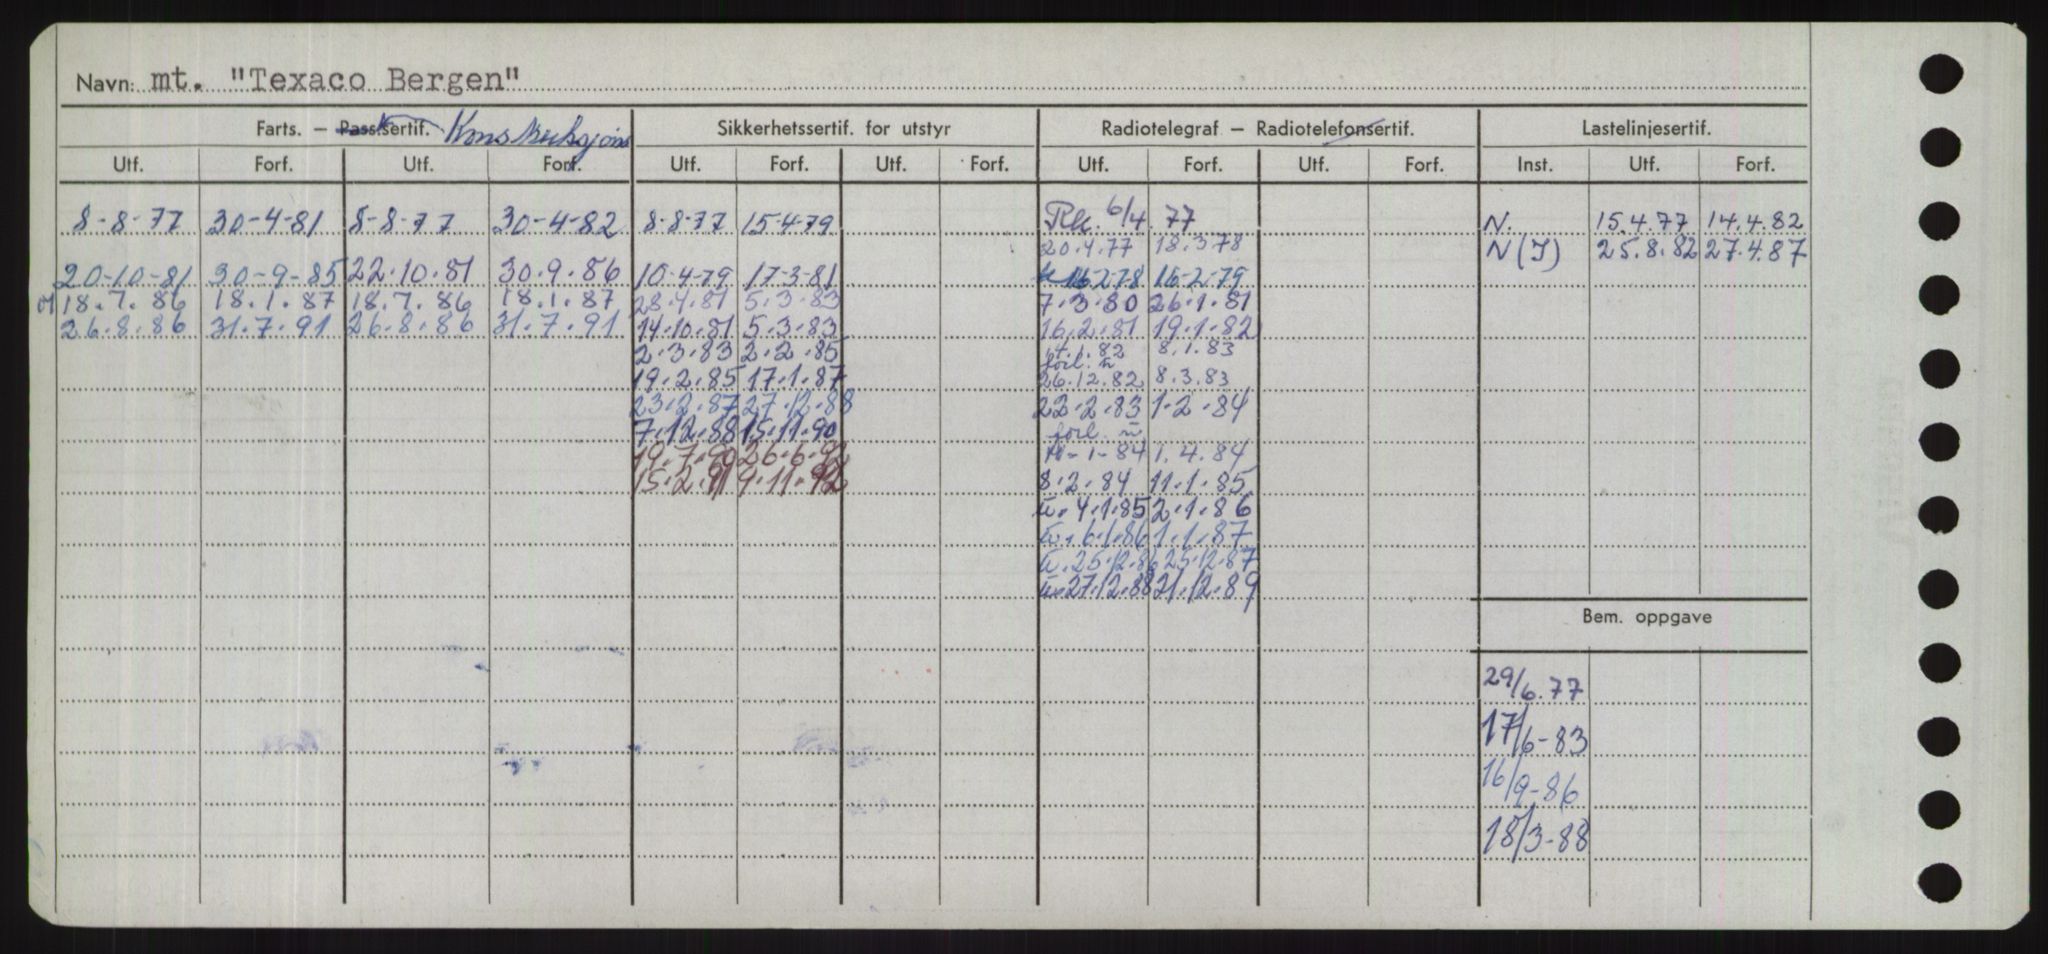 Navn: mt. "Texaco Bergen"
Farts. – Pass.sertif. Konstruksjons Sikkerhetssertif. for utstyr Radiotelegraf – Radiotelefonsertif. Lastelinjesertif.
Utf. Forf. Utf. Forf. Utf. Forf. Utf. Forf. Utf. Forf. Utf. Forf. Inst. Utf. Forf.
8-8-77 30-4-81 8-8-77 30-4-82 8-8-77 15-4-79 6/4.77 N. 15.4.77 14.4.82
20.4.77 18.3.78 N(I) 25.8.82 27.4.87
20-10-81 30-9-85 22.10.81 30.9.86 10-4-79 17-3-81 16-2-78 16-2-79
18.7.86 18.1.87 18.7.86 18.1.87 28.4.81 5.3.83 7.3.80 26.1.81
26.8.86 31.7.91 26.8.86 31.7.91 14.10.81 5.3.83 16.2.81 19.1.82
2.3.83 2.2.85 1.82 8.1.83
forl. u
19.2.85 17.1.87 26.12.82 8.3.83
23.2.87 27.12.88 22.2.83 1.2.84
7.12.88 15.11.90 forl. u
19.7.90 26.6.92 1-84 1.4.84
15.2.91 9.11.92 8.2.84 11.1.85
u. 4.1.85 2.1.86
u. 6.1.86 1.1.87
u. 25.12.86 25.12.87
u. 27.12.88 21.12.89
Bem. oppgave
29/6.77
17/6-83
16/9-86
18/3-88